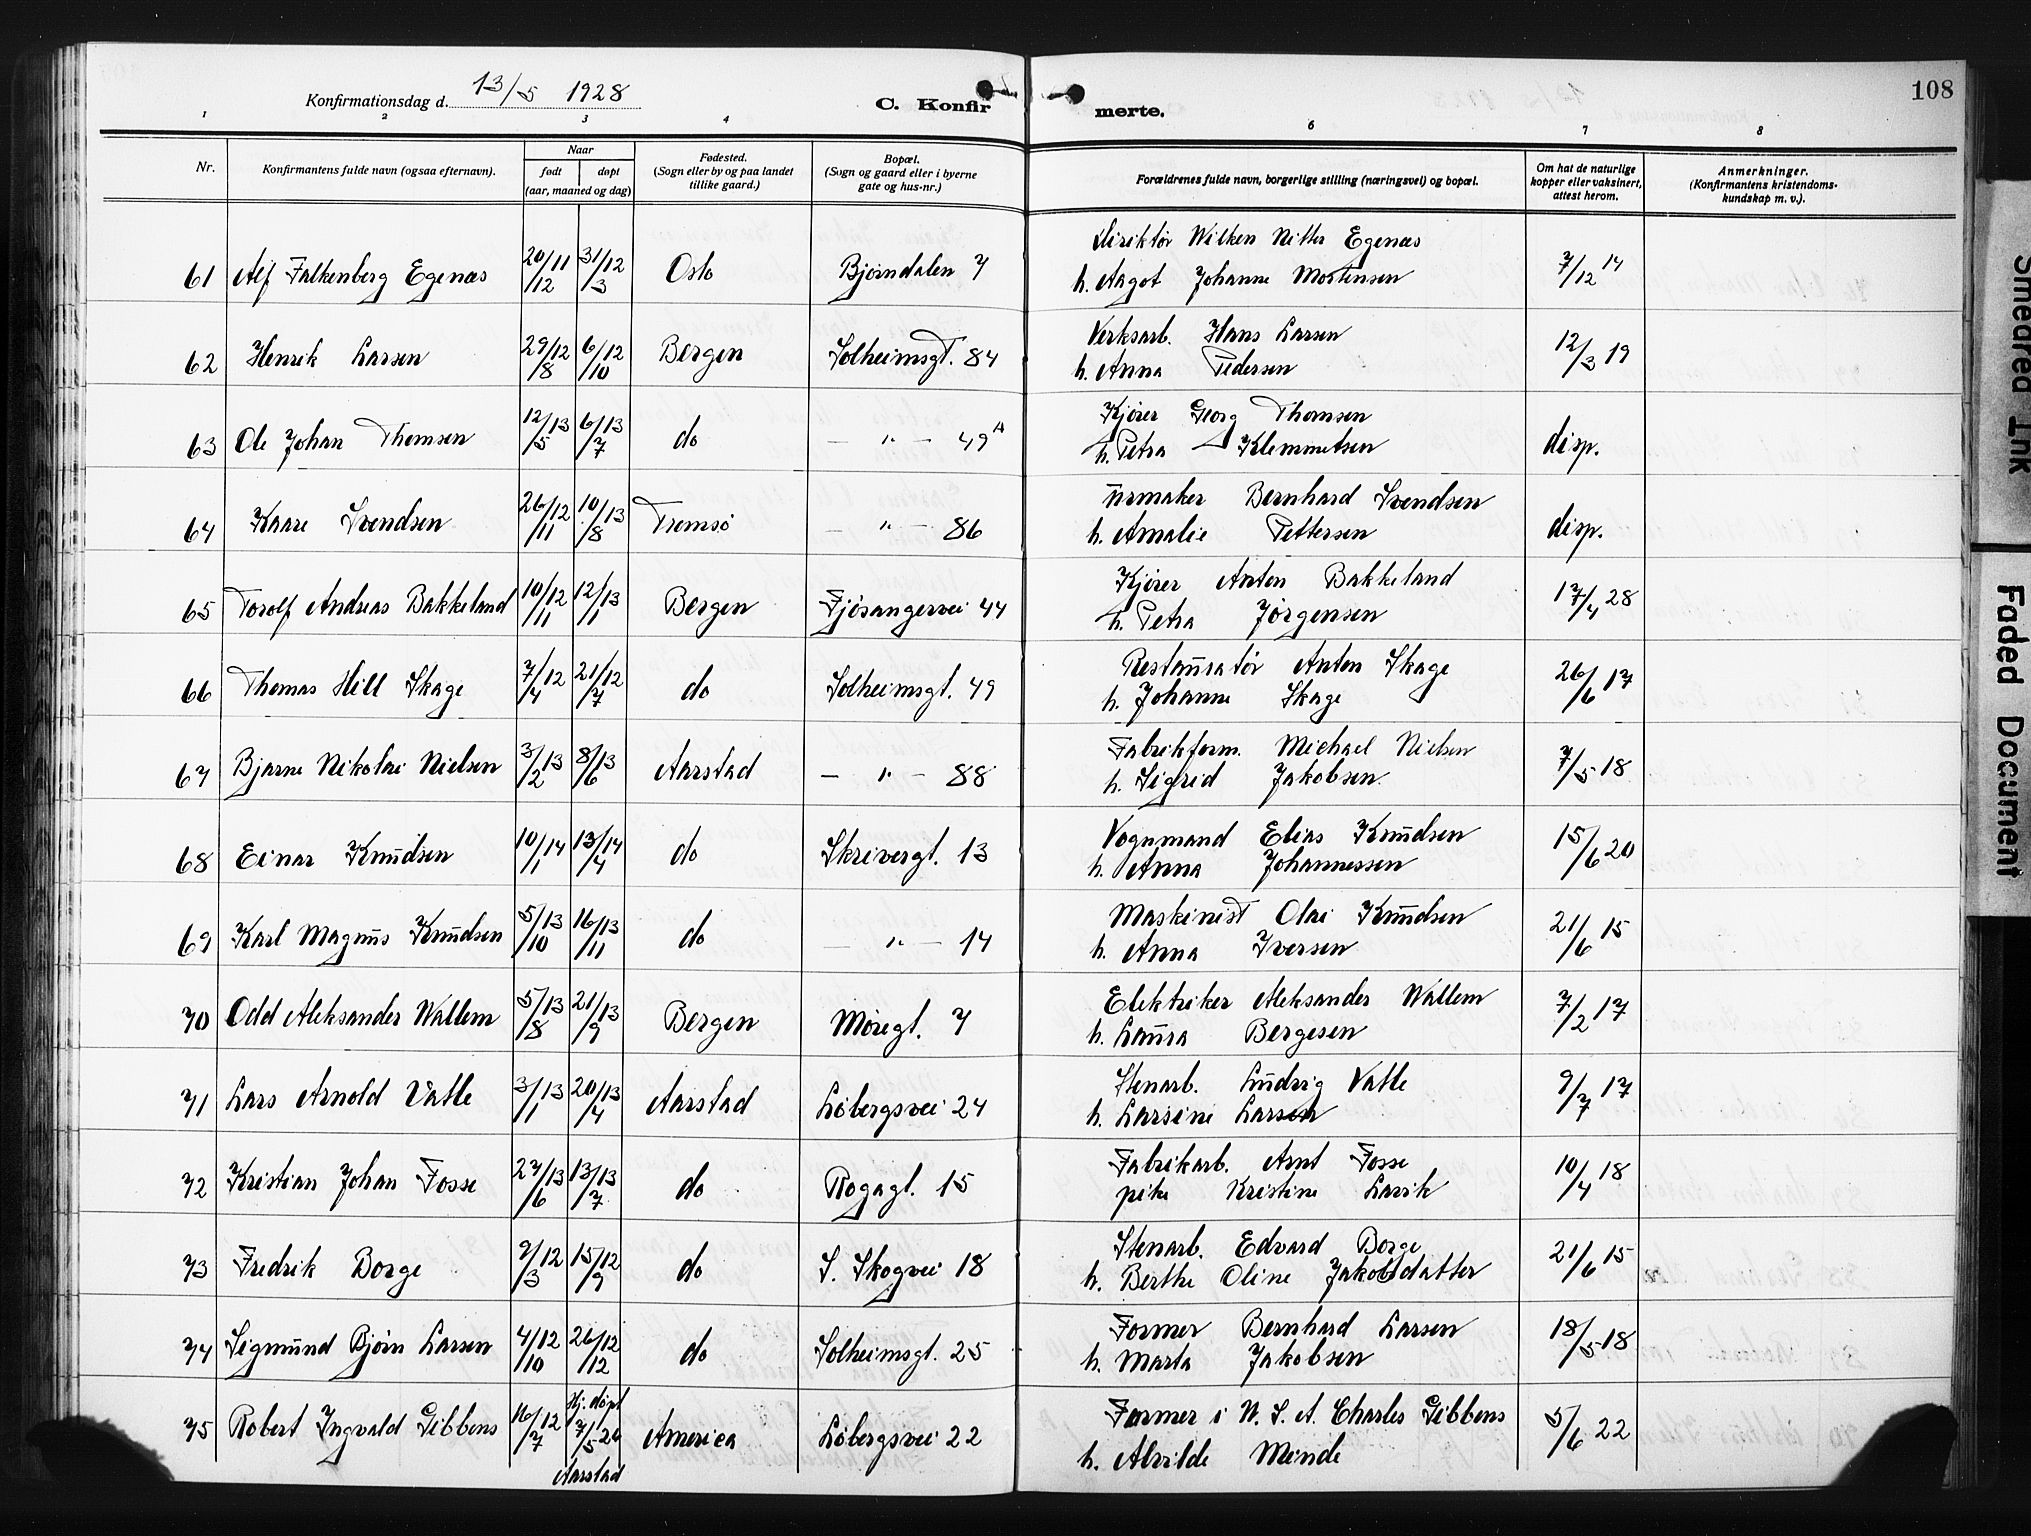 Konfirmationsdag d. 13/5 1928
C. Konfirmerte.
108
1 2 3 4 6 7 8
Nr.
Konfirmantens fulde navn (ogsaa efternavn).
Naar
født døpt
(aar, maaned og dag)
Fødested.
(Sogn eller by og paa landet
tillike gaard.)
Bopæl.
(Sogn og gaard eller i byerne
gate og hus-nr.)
Forældrenes fulde navn, borgerlige stilling (næringsvei) og bopæl.
Om hat de naturlige
kopper eller vaksinert,
attest herom.
Anmerkninger.
(Konfirmantens kristendoms-
kundskap m. v.).
Direktør Wilken Nitter Egenæs
61 Alf Falkenberg Egenæs 20/11 12 31/12 3 Oslo Bjørndalen 7 h. Aagot Johanne Mortensen 7/12 14
Verksarb. Hans Larsen
62 Henrik Larsen 29/8 12 6/10 12 Bergen Solheimsgt. 84 h. Anna Pedersen 12/3 19
Kjører Georg Thomsen
63 Ole Johan Thomsen 12/5 13 6/7 13 do — " — 49A h. Petra Klemmetsen disp.
Urmaker Bernhard Svendsen
64 Kaare Svendsen 26/11 12 10/8 13 Tromsø — " — 86 h. Amalie Pettersen disp.
Kjører Anton Bakkeland
65 Torolf Andreas Bakkeland 10/11 12 12/1 13 Bergen Fjøsangervei 44 h. Petra Jørgensen 17/4 28
Restauratør Anton Skage
66 Thomas Hill Skage 7/4 12 21/7 12 do Solheimsgt. 49 h. Johanne Skage 26/6 17
Fabrikform. Michael Nielsen
67 Bjarne Nikolai Nielsen 3/2 13 8/6 13 Aarstad — " — 88 h. Sigrid Jakobsen. 7/5 18
Vognmand Elias Knudsen
68 Einar Knudsen 10/1 14 13/4 14 do Skrivergt. 13 h. Anna Johannessen 15/6 20
Maskinist Olai Knudsen
69 Karl Magnus Knudsen 5/10 13 16/11 13 do — " — 14 h. Anna Iversen 21/6 15
Elektriker Aleksander Wallem
70 Odd Aleksander Wallem 5/8 13 21/9 13 Bergen Møregt. 7 h. Laura Bergesen 7/2 17
Stenarb. Ludvig Valle
71 Lars Arnold Valle 3/1 13 20/4 13 Aarstad Løbergsvei 24 h. Larsine Larsen 9/7 17
Fabrikarb. Arnt Fosse
72 Kristian Johan Fosse 27/6 13 13/7 13 do Rogagt. 15 pike Kristine Larvik 10/4 18
Stenarb. Edvard Borge
73 Fredrik Borge 9/3 12 15/9 12 do S. Skogvei 18 h. Berthe Oline Jakobsdatter 21/6 15
Former Bernhard Larsen
74 Sigmund Bjørn Larsen 4/10 12 26/12 12 do Solheimsgt. 25 h. Marta Jakobsen 18/5 18
Former i U. S. A. Charles Gibbens
75 Robert Ingvald Gibbens 16/7 12 Hj. døpt 7/5 20 Aarstad America Løbergsvei 22 h. Alvilde Meinde 5/6 22
Smeared Ink
Faded Document